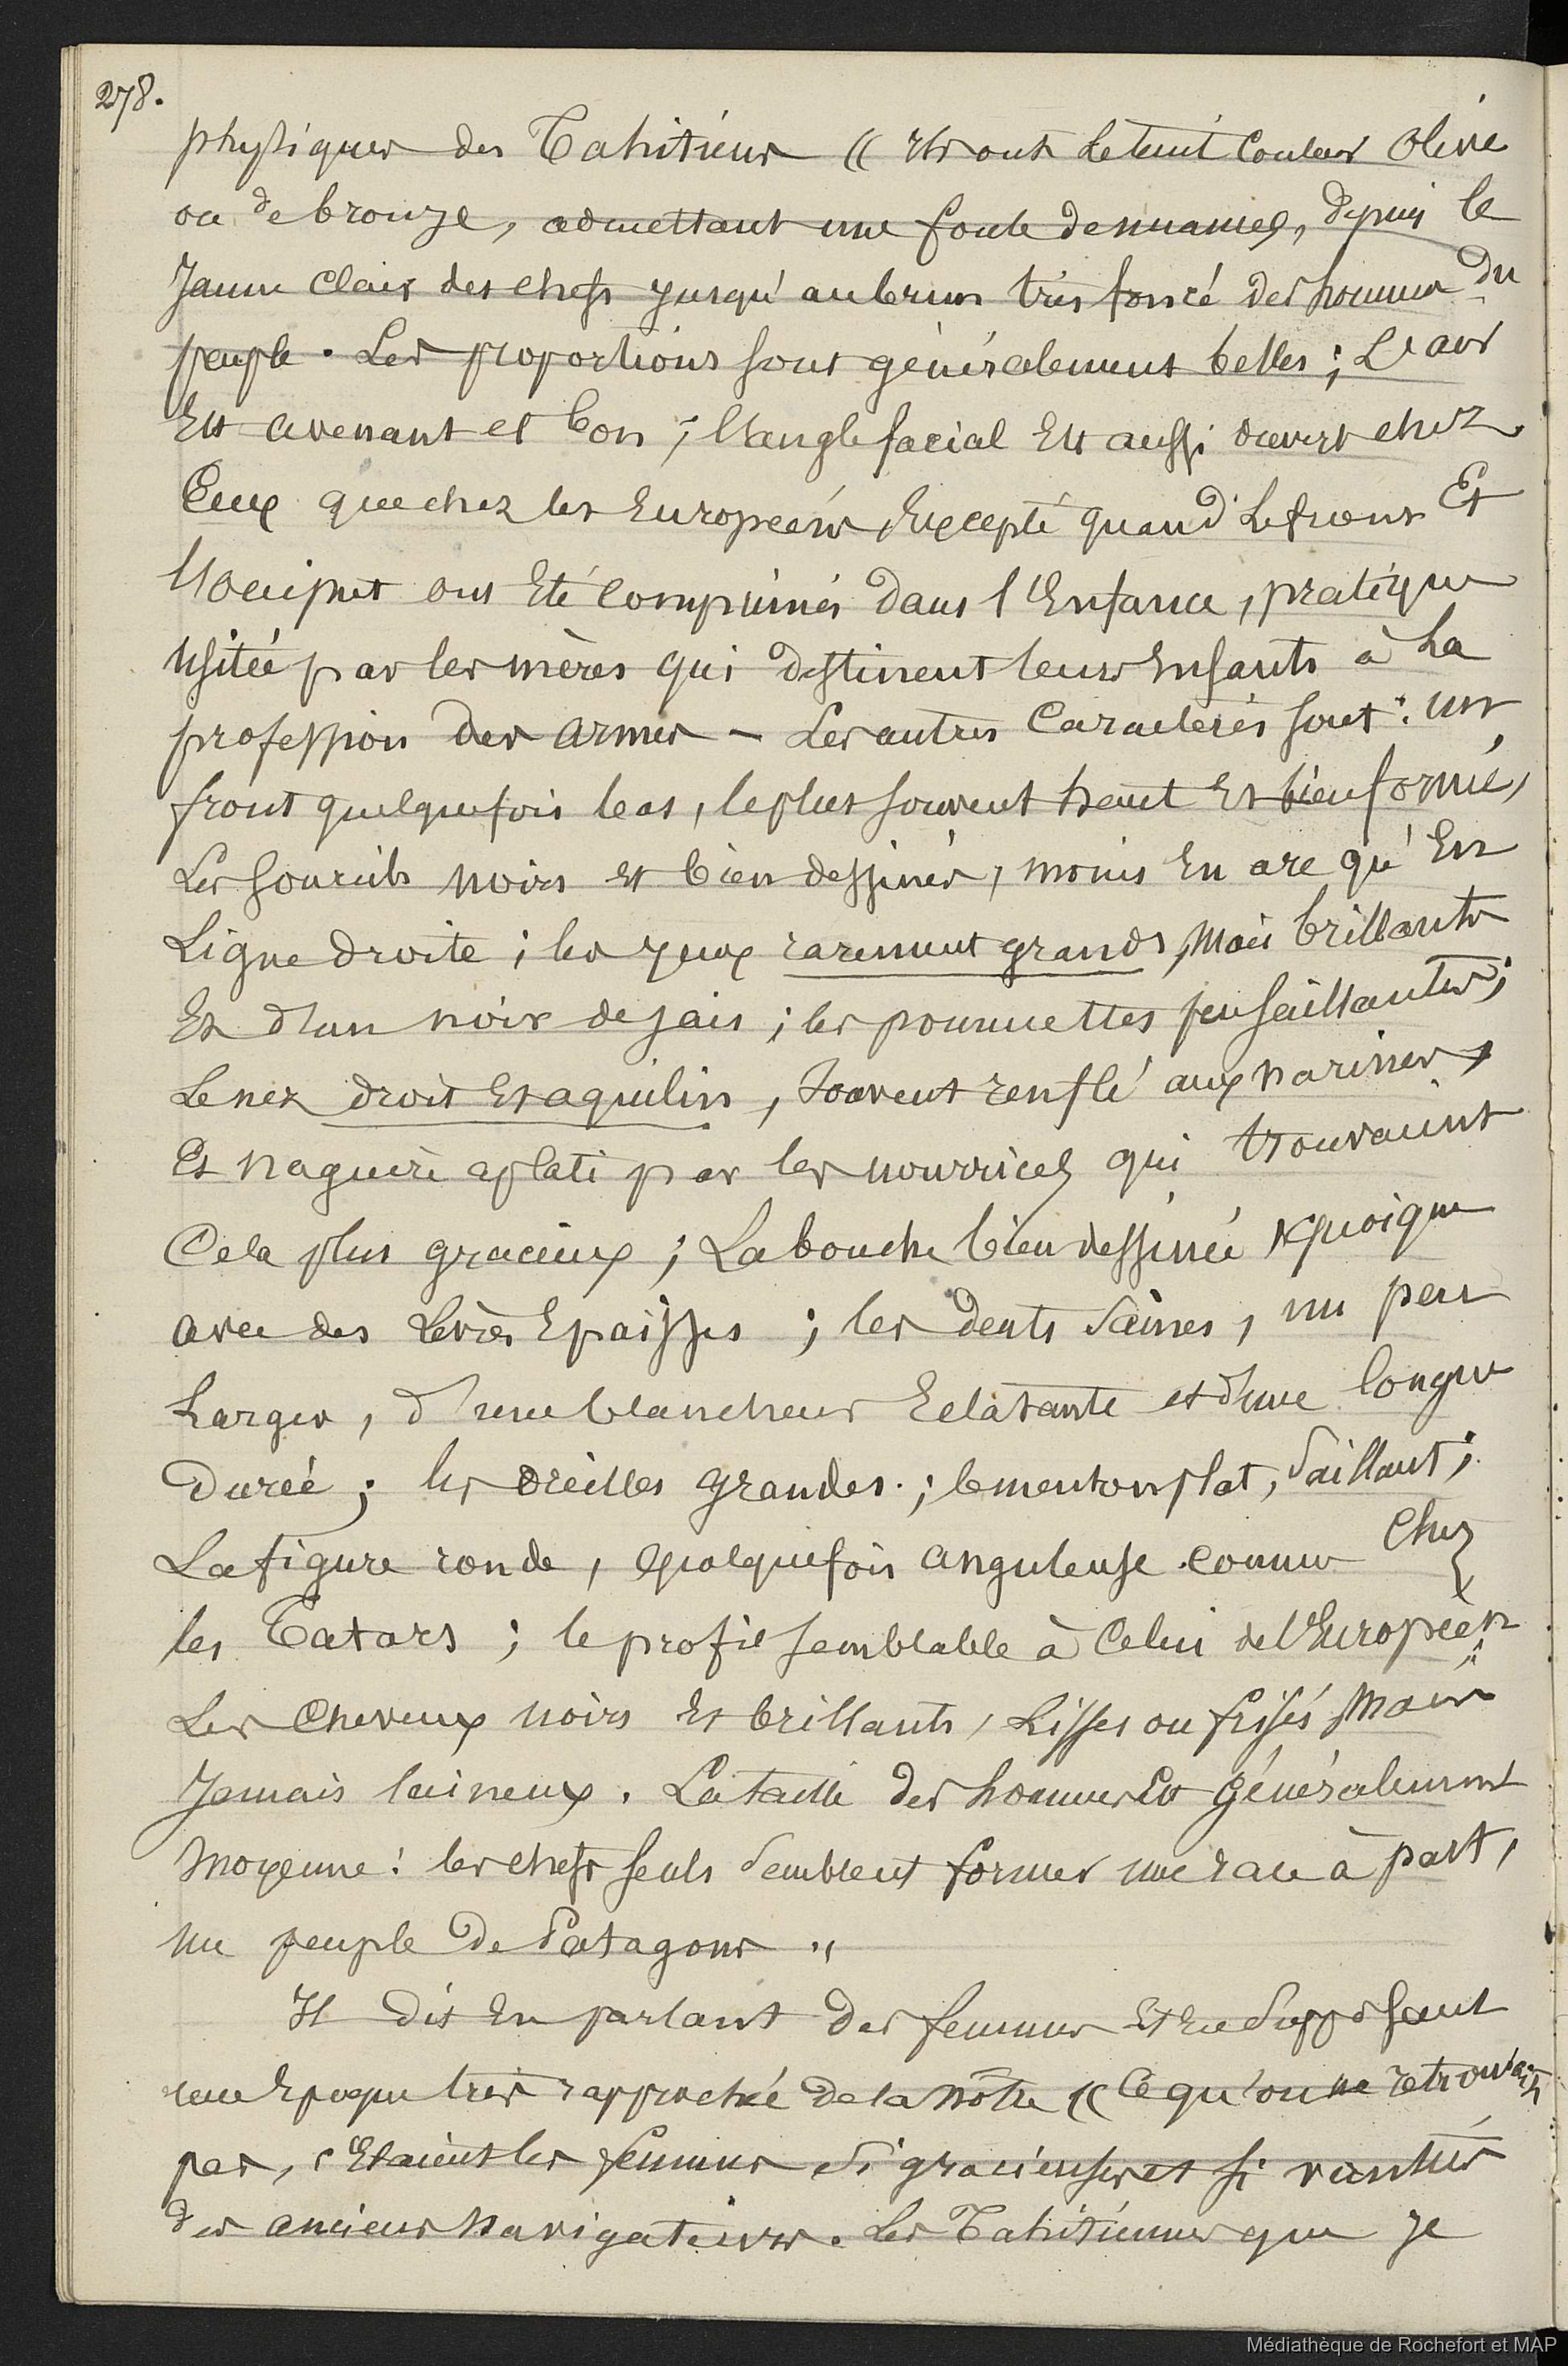 278.
physiques des Tahitiens (( Ils ont le teint couleur olive
ou de bronze, admettant une foule de nuances, depuis le
jaune clair des chefs jusqu'au brun très foncé des hommes du
peuple. Les proportions sont généralement belles ; L'air
Est avenant et bon ; l'angle facial Est aussi ouvert chez
Eux que chez les Européens Excepté quand le front Et
l'occiput ont Eté comprimés dans l'Enfance, pratique
usitée par les mères qui destinent leurs Enfants à la
profession des armes – Les autres caractères sont : un
front quelquefois bas, le plus souvent haut Et bien formé,
Les sourcils noirs et bien dessinés, moins En arc qu'En
Ligne droite ; les yeux rarement grands, mais brillants
Et d'un noir de jais ; les pommettes peu saillantes ;
Le nez droit Et aquilin, souvent renflé aux narines,
Et naguère aplati par les nourrices qui trouvaient
Cela plus gracieux ; La bouche bien dessinée quoique
avec des lèvres Epaisses ; les dents saines, un peu
Larges, d'une blancheur Eclatante et d'une longue
Durée ; les oreilles grandes ; le menton plat, saillant ;
La figure ronde, quelquefois anguleuse comme chez
les Tatars ; le profil semblable à Celui de l'Européen ;
Les cheveux noirs Et brillants, Lisses ou frisés mais
Jamais laineux. La taille des hommes Est généralement
moyenne : les chefs seuls semblent former une race à part,
un peuple de Patagons "
Il dit En parlant des femmes Et En supposant
une Epoque très rapprochée de la nôtre (( Ce qu'on ne retrouvait
pas, c'Etaient les femmes si gracieuses et si vantées
des anciens navigateurs. Les Tahitiennes que je
Médiathèque de Rochefort et MAP